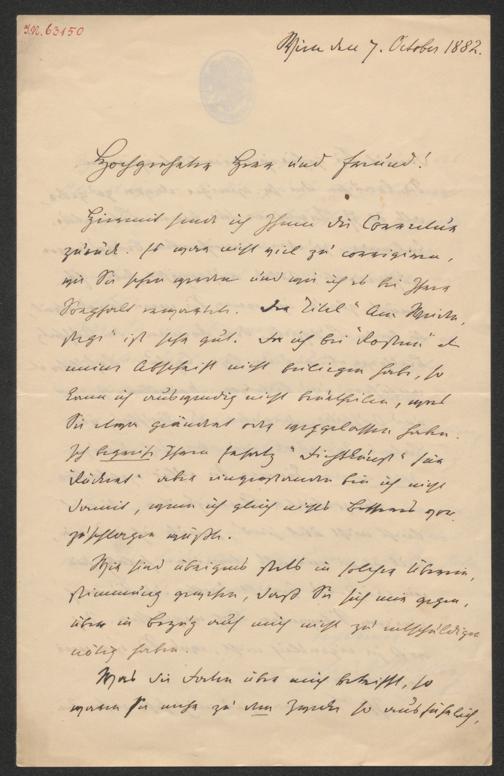 I.N. 63150
Wien den 7. October 1882.
Hochgeehrter Herr und Freund!
Hiermit sende ich Ihnen die Correctur
zurück. Es war nicht viel zu corrigiren,
wie Sie sehen werden und wie ich es bei Ihrer
Sorgfalt erwartete. Der Titel "Am Weiden
stege" ist sehr gut. Da ich bei "Rosten" die
meiner Abschrift nicht beiliegen habe, so
kann ich auswendig nicht beurtheilen, was
Sie etwa geändert oder weggelassen haben.
Ich begreife Ihren Zusatz "Dichtkunst" für
aber einverstanden bin ich nicht
damit, wenn ich gleich nichts Besseres vor
zuschlagen wüßte.
Wir sind übrigens stets in solcher Überein
stimmung gewesen, daß Sie sich mir gegen
über in Bezug auf mich nicht zu entschuldigen
nötig haben.
Was die Daten über mich betrifft, so
waren sie mehr zu dem Zwecke so ausführlich,